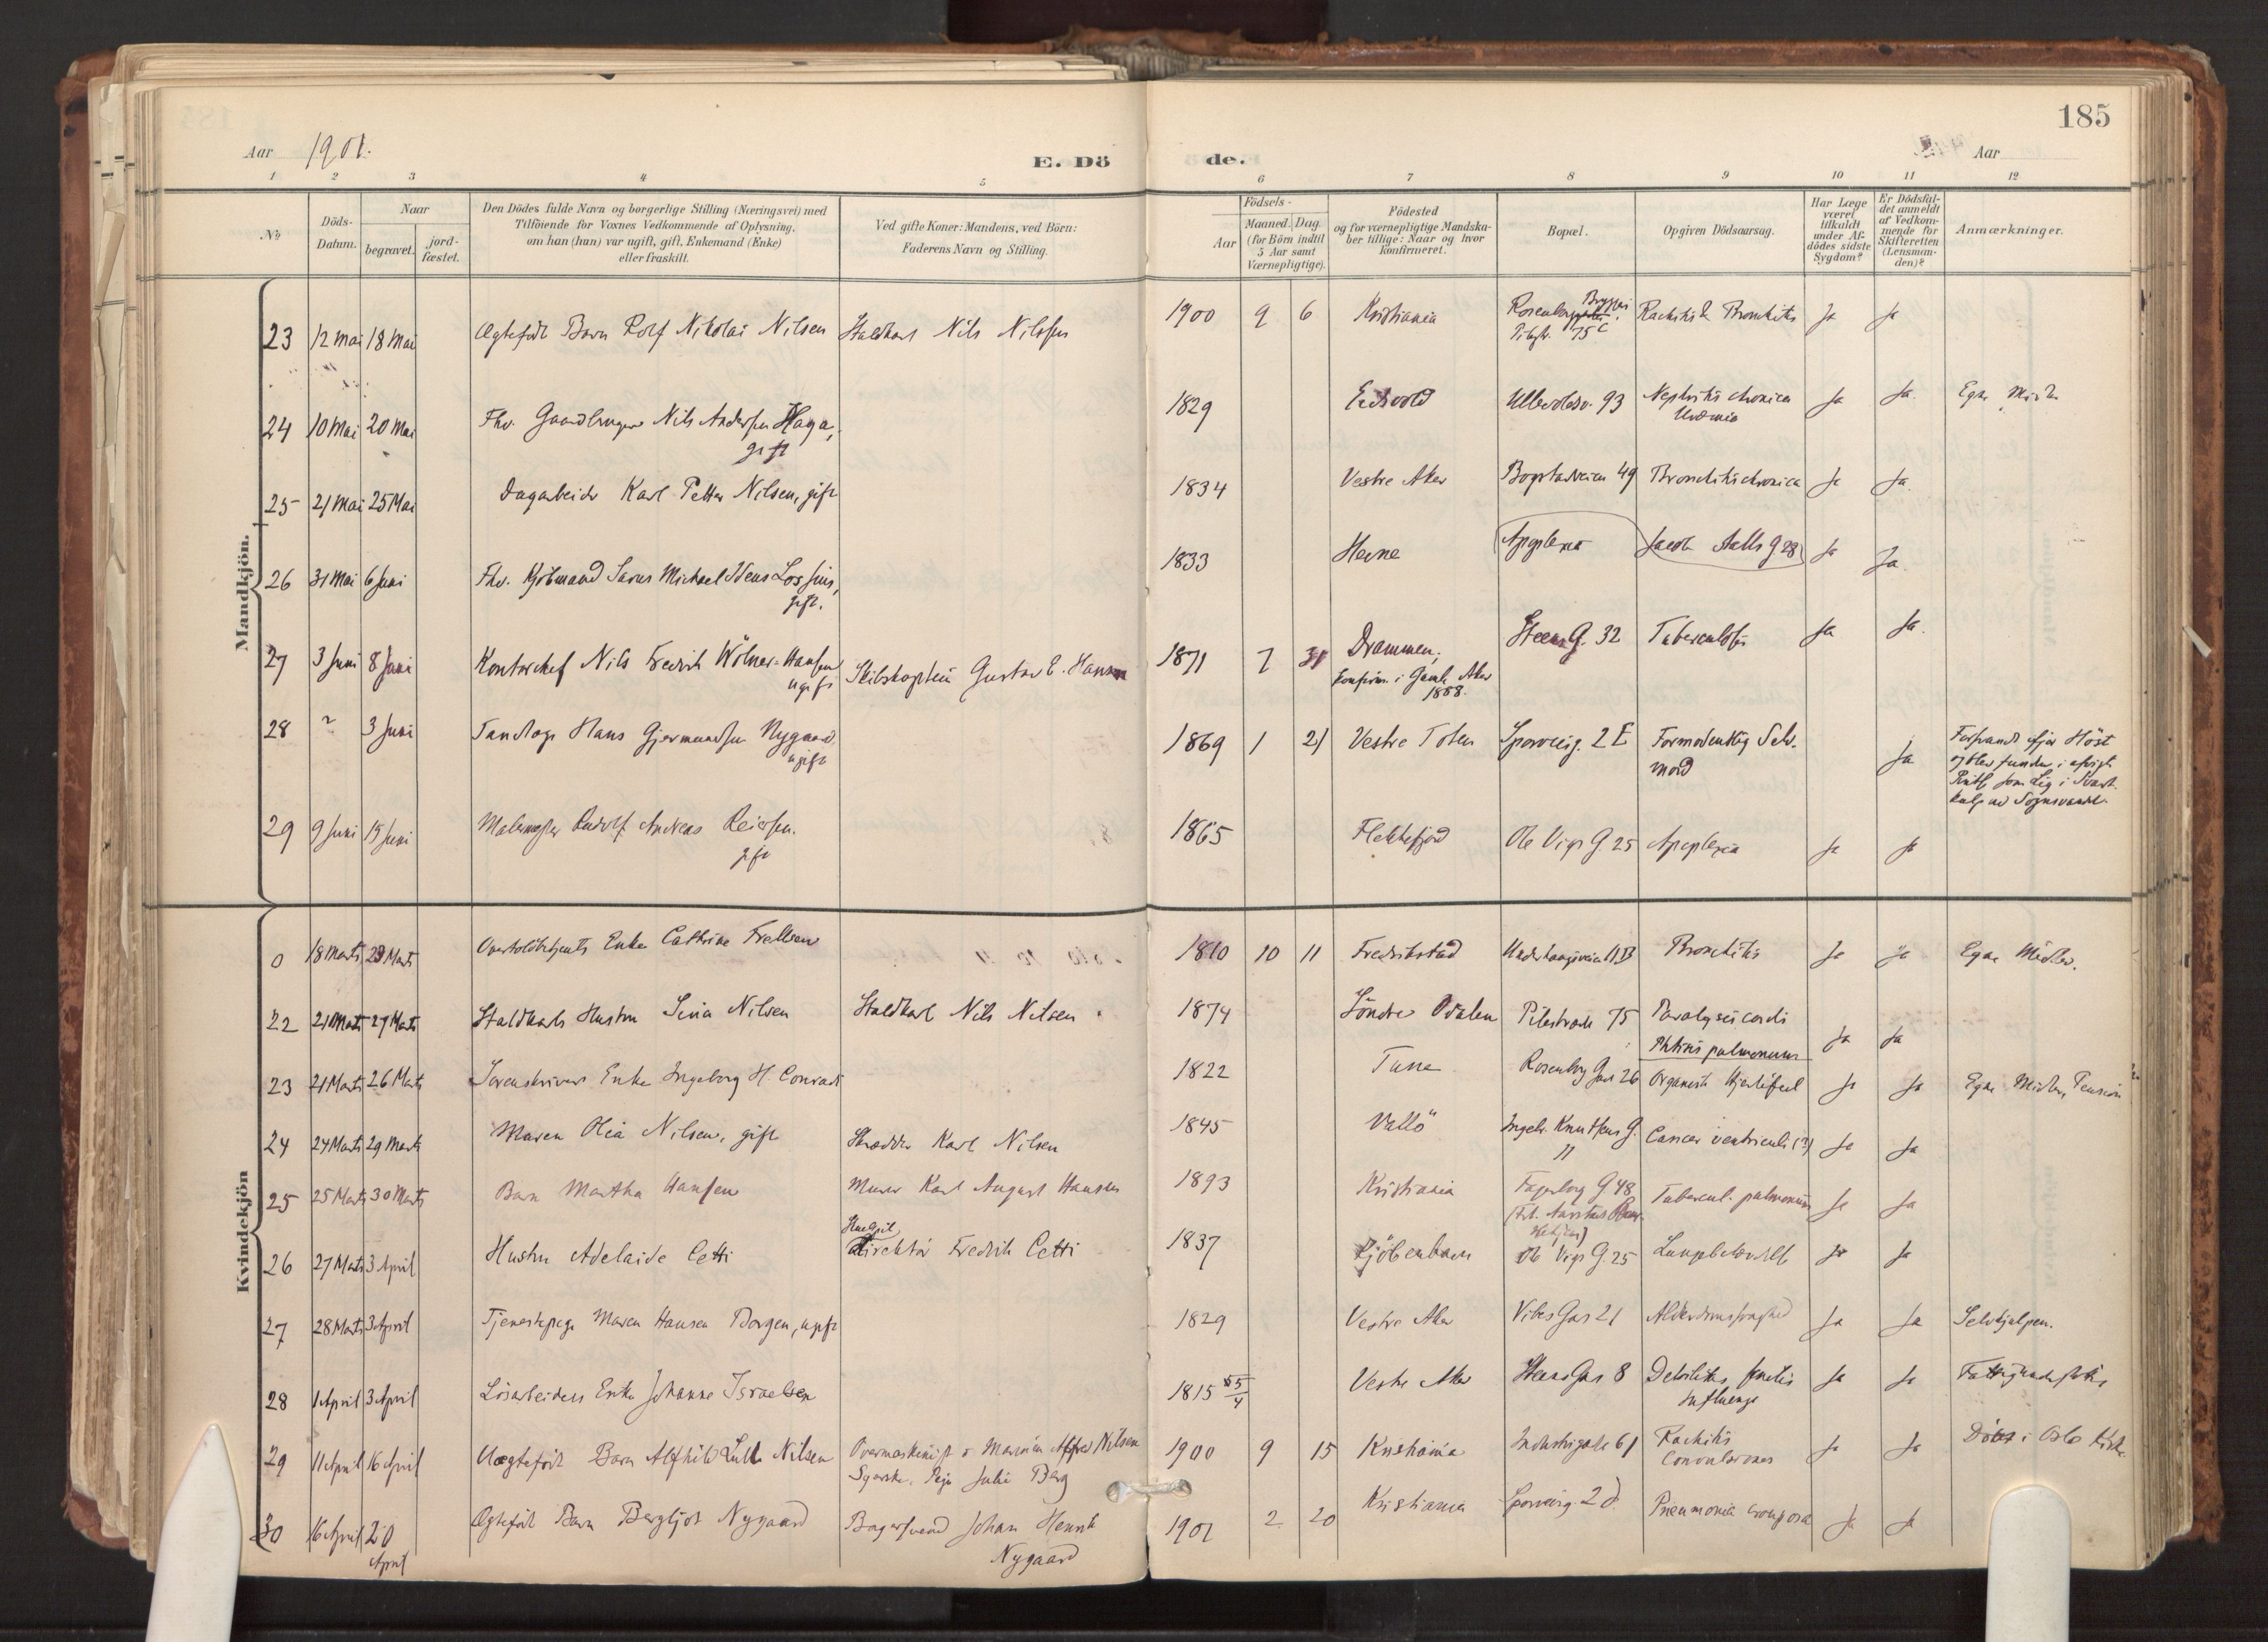 185
Aar 1901.
E. Dö de.
Aar
1 2 3 4 5 6 7 8 9 10 11 12
No
Döds-Datum.
Naar
begravet.
jord-fæstet.
Den Dödes fulde Navn og borgerlige Stilling (Næringsvei) med
Tilföiende for Voxnes Vedkommende af Oplysning,
om han (hun) var ugift, gift, Enkemand (Enke)
eller fraskilt.
Ved gifte Koner: Mandens, ved Börn:
Faderens Navn og Stilling.
Födsels-
Aar
Maaned. Dag.
(for Börn indtil
5 Aar samt
Værnepligtige).
Födested
og for værnepligtige Mandska-
ber tillige: Naar og hvor
konfirmeret.
Bopæl.
Opgiven Dödsaarsag.
Har Læge
været
tilkaldt
under Af-
dödes sidste
Sygdom?
Er Dödsfal-
det anmeldt
af Vedkom-
mende for
Skifteretten
(Lensman-
den)?
Anmærkninger.
Mandkjön.
23 12 Mai 18 Mai Ægtefödt Barn Rolf Nikolai Nilsen Staldkarl Nils Nilssen 1900 9 6 Kristiania Pilestr. 75 c Rachitis & Bronchitis Ja Ja
24 10 Mai 20 Mai Fhv. Gaardbruger Nils Anderssen Haga, gift 1829 Eidsvold Ullevoldsv. 93 Nephritis chronica Uræmia Ja Ja. Egne Midler
25 21 Mai 25 Mai Dagarbeider Karl Petter Nilsen, gift 1834 Vestre Aker Bogstadveien 49 Bronchitis chronica Ja Ja.
26 31 Mai 6 Juni Fhv. Kjöbmand Michael Lossius, gift. 1833 Hevne Apoplexia Jacob Aalls G 28 Ja Ja.
27 3 Juni 8 Juni Kontorchef Nils Fredrik Wölner-Hansen ugift Skibskaptein Gustav E. Hansen 1871 7 31 Drammen, konfirm. i Gamle Aker 1888. Steens G. 32 Tuberculosis Ja Ja.
28 ? 3 Juni Tandlæge Hans Gjermundsen Nygaard ugift 1869 1 21 Vestre Toten Sporveisg. 2 E Formodentlig Selv-
mord Ja Forsvandt ifjor Höst
og blev funden i
som Lig i Svart-
kulp ved Sognsvandet.
29 9 Juni 15 Juni Malermester Rudolf Andreas Reiersen. gift 1865 Flekkefjord Ole Vigs G. 25 Apoplexia Ja Ja
Kvindekjön
0 18 Marts 23 Marts Enke Cathrine Frellsen 1810 10 11 Fredrikstad Underhaugsveien 11 B Bronchitis Ja Ja Egne Midler.
22 21 Marts 27 Marts Staldkarls Hustru Lina Nilsen Staldkarl Nils Nilsen 1874 Söndre Odalen Pilestræde 75 Paralysis cordis
Phtisis pulmonum Ja Ja
23 21 Marts 26 Marts Sorenskrivers Enke Ingeborg H. Conradi 1822 Tune Rosenborg Gade 26 Organisk Hjertefeil Ja Ja Egne Midler, Pension
24 24 Marts 29 Marts Maren Olea Nilsen, gift Skrædder Karl Nilsen 1845 Vallö Ingeb. Knutsens G. 11 Cancer ventriculi (?) Ja Ja
25 25 Marts 30 Marts Barn Martha Hansen Murer Karl August Hansen 1893 Kristiania Fagerborg G 48 Tubercul. pulmonum Ja Ja
26 27 Marts 3 April Hustru Adelaide Cetti Direktör Fredrik Cetti 1837 Kjöbenhavn Ole Vigs G. 25 Lungebetændelse Ja Ja
27 28 Marts 3 April Tjenestepige Maren Hansen Borgen, ugift 1829 Vestre Aker Vibes Gade 21 Alderdomssvaghed Ja Ja Selvhjulpen.
28 1 April 3 April Lösarbeiders Enke Johanne Israelsen 1815 Vestre Aker Steens Gade 8 Debilitas senilis
Influenza Ja Ja
29 11 April 16 April Uægtefödt Barn Alfhild Nilsen Overmaskinist i Marinen Alfred Nilsen
Syerske, Pige Julie Berg 1900 9 15 Kristiania Industrigade 61 Rachitis
Convulsiones Ja Ja Döbt i Oslo Kirke
30 16 April 20
April Ægtefödt Barn Bergljot Nygaard Bagersvend Johan Henrik
Nygaard 1901 2 20 Kristiania Sporveisg. 2 d. Pneumonia crouposa Ja Ja